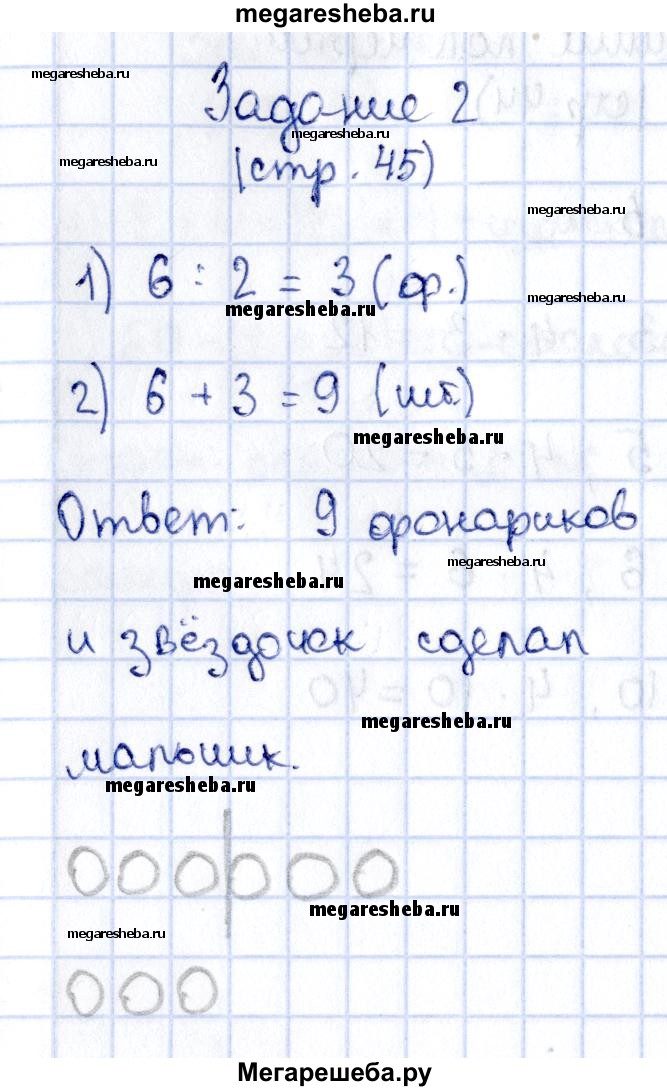 megaresheba.ru
megaresheba.ru
Задание 2
megaresheba.ru
megaresheba.ru
(стр. 45)
megaresheba.ru
1) 6 : 2 = 3 (ф.)
megaresheba.ru
megaresheba.ru
2) 6 + 3 = 9 (шт.)
megaresheba.ru
Ответ: 9 фонариков
megaresheba.ru
megaresheba.ru
и звёздочек сделал
megaresheba.ru
мальчик.
megaresheba.ru
megaresheba.ru
megaresheba.ru
Мегарешеба.ру